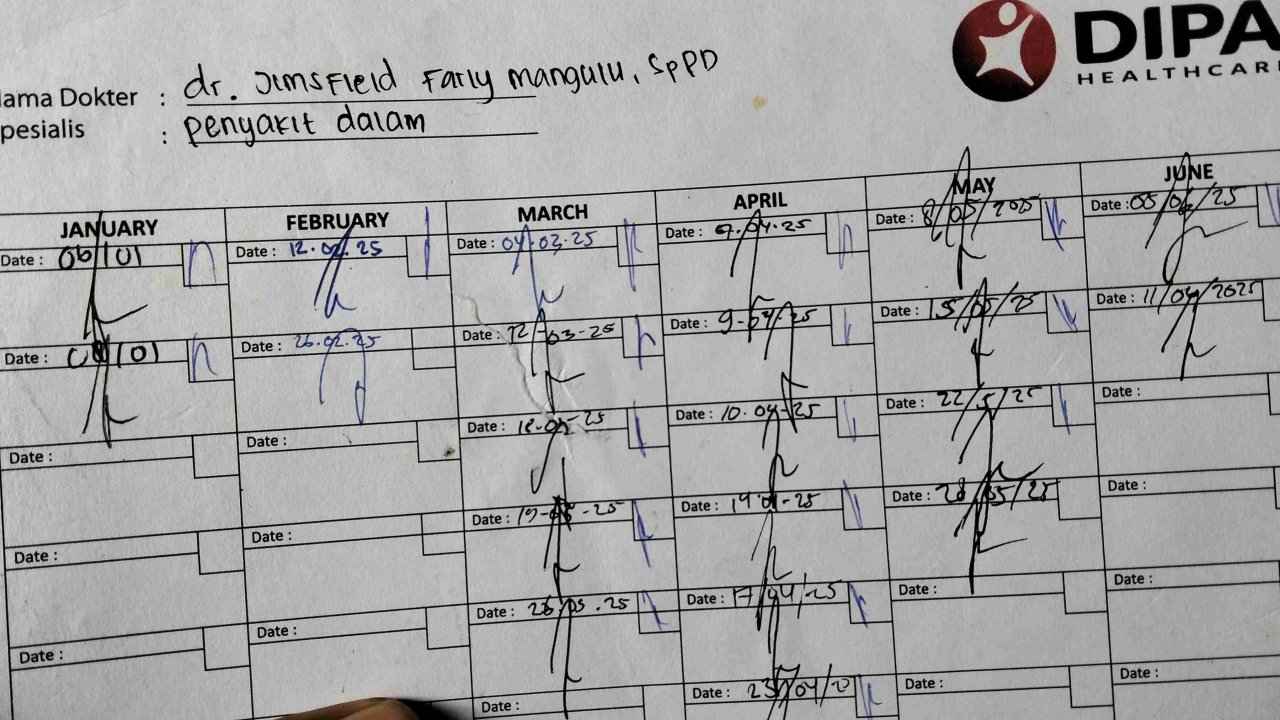 DIPA
HEALTHCAR
Nama Dokter : dr. Jimsfield Farly Mangulu, SpPD
pesialis : penyakit dalam
JANUARY FEBRUARY MARCH APRIL MAY JUNE
Date : 06/01 Date : 12.02.25 Date : 04.03.25 Date : 9.04.25 Date : 8/05/2025 Date : 05/06/25
Date : 08/01 Date : 26.02.25 Date : 12-03-25 Date : 9-04/25 Date : 15/05/25 Date : 11/06/2025
Date : Date : Date : 18-03-25 Date : 10.04-25 Date : 22/5/25 Date :
Date : Date : Date : 19-03-25 Date : 14.04-25 Date : 28/05/25 Date :
Date : Date : Date : 26.03.25 Date : 17/04/25 Date : Date :
Date : Date : 23/04/2 Date : Date :